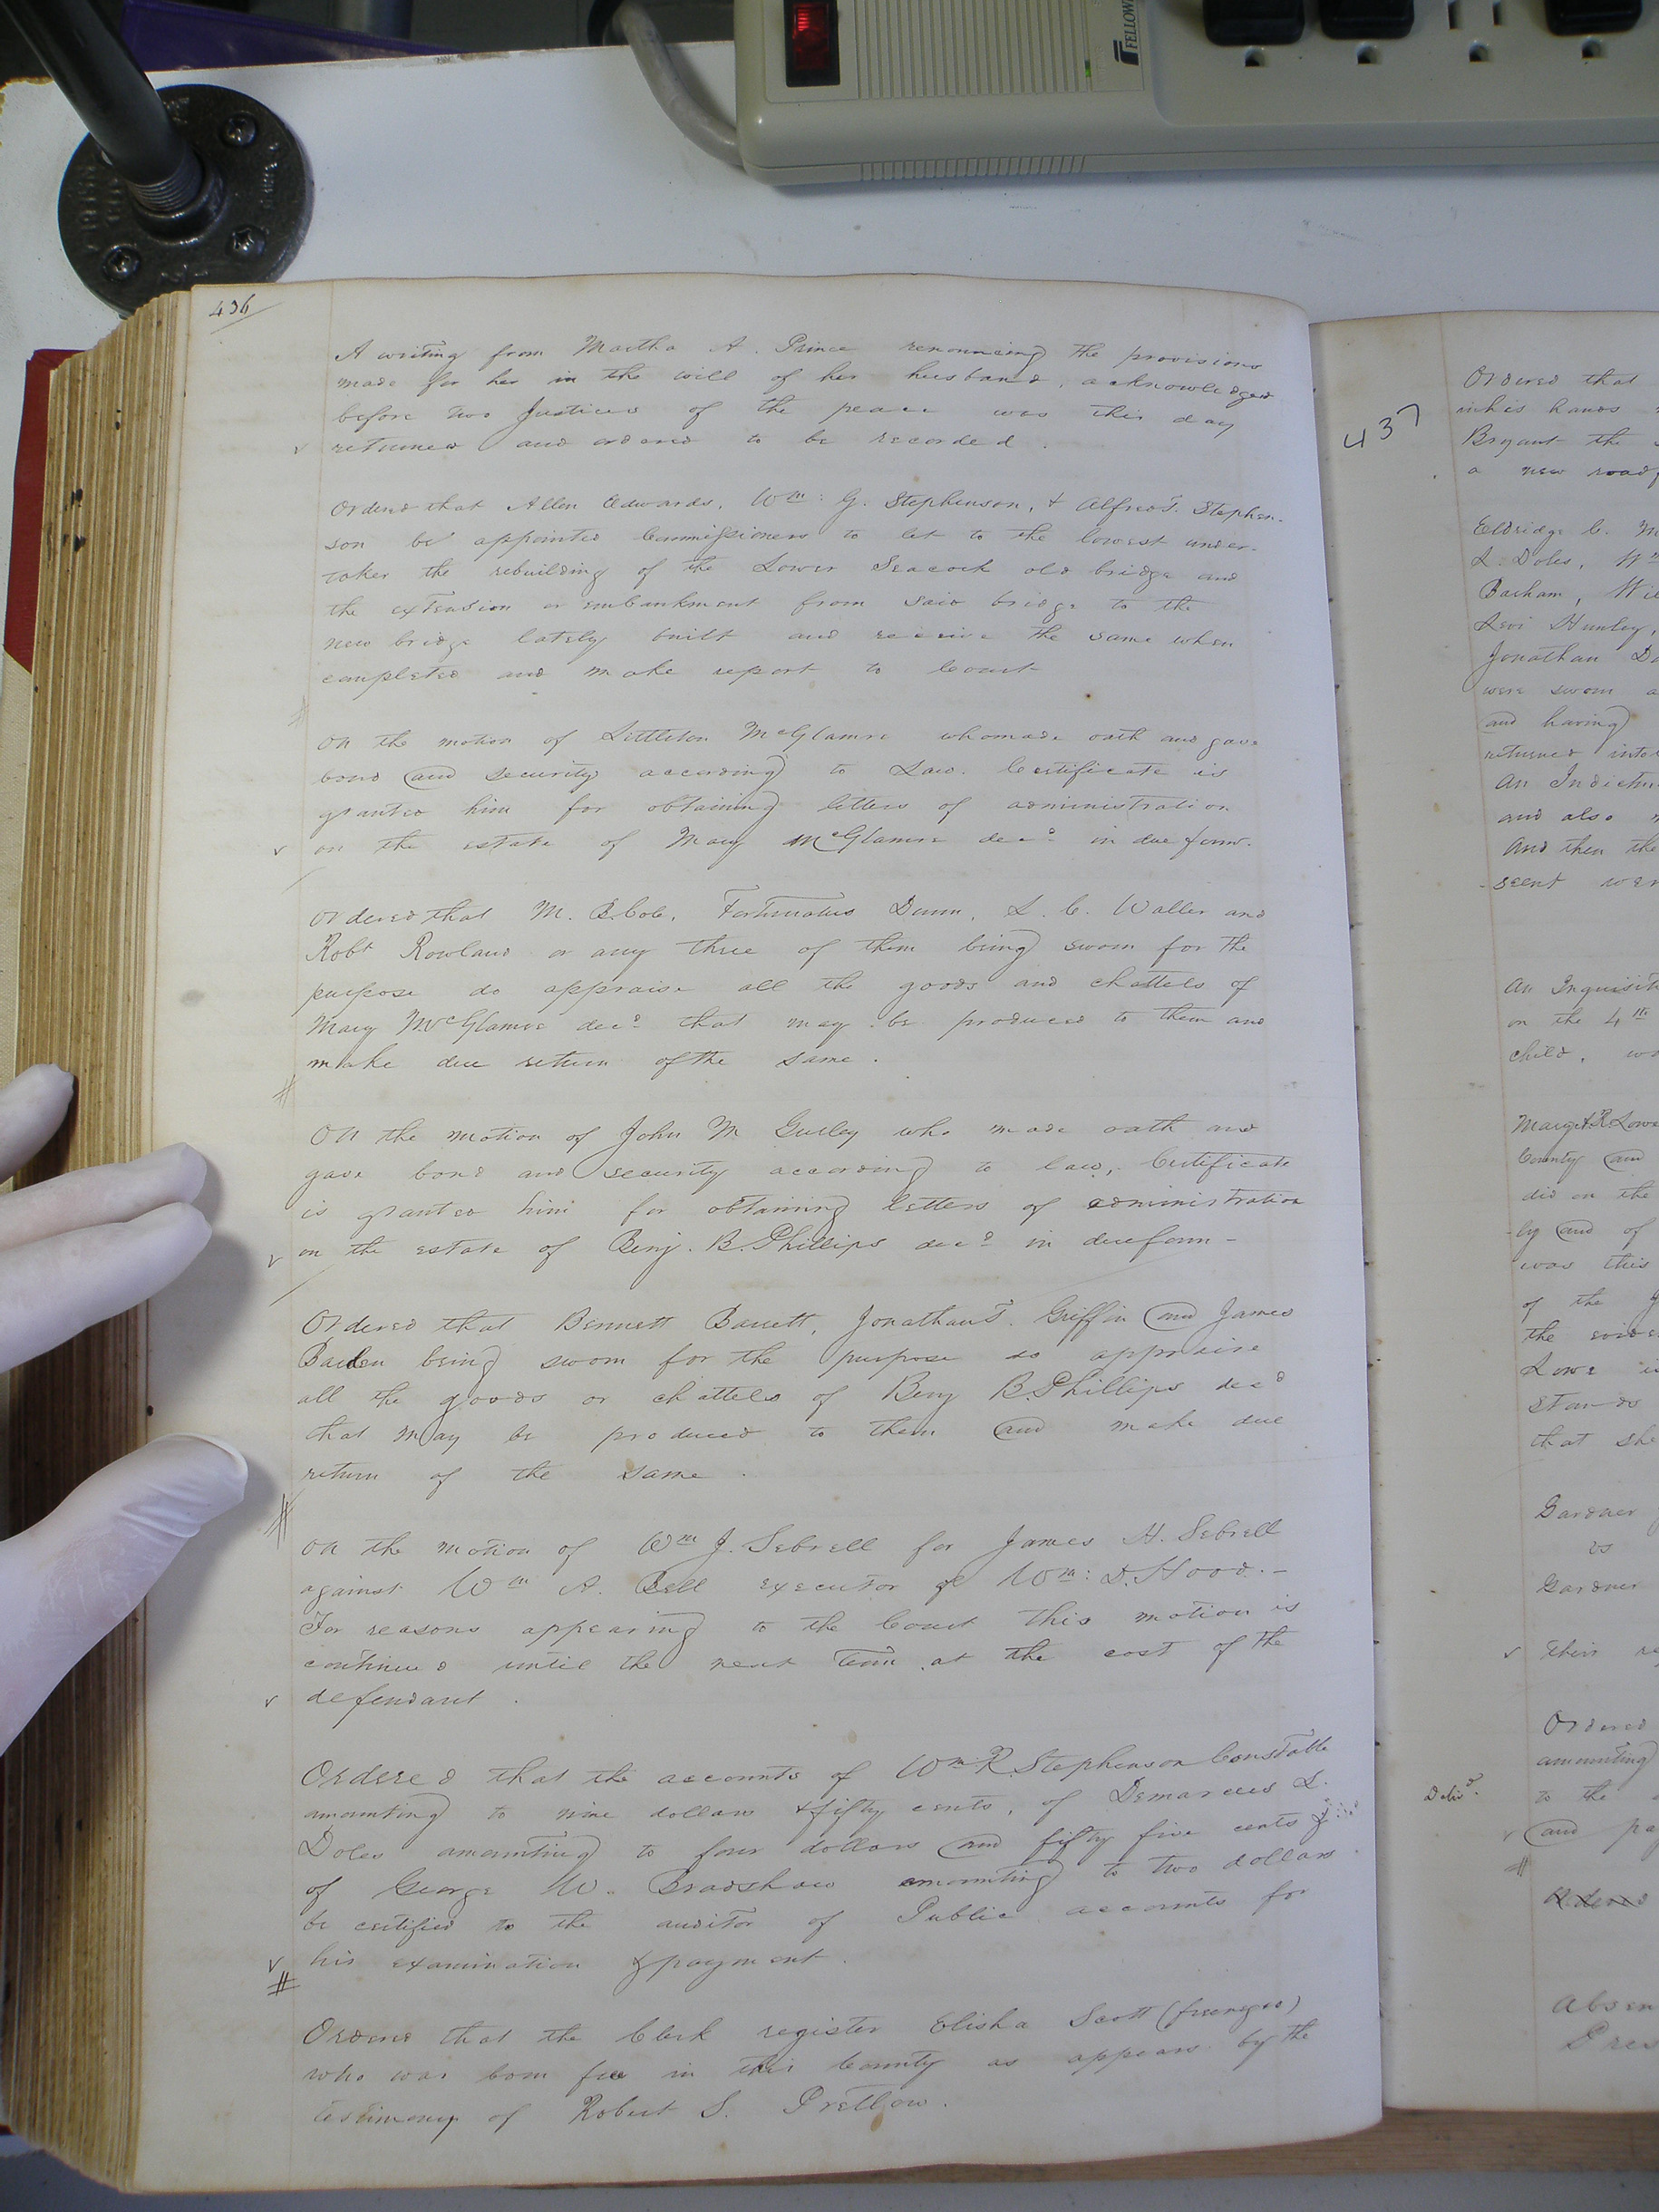 FELLOW
436
A writing from Martha A. Prince renouncing the provisions
made for her in the will of her husband, acknowledged
before two Justices of the peace was this day
returned and ordered to be recorded.
Ordered that Allen Edwards, Wm: G. Stephenson, & Alfred T. Stephen-
son be appointed Commissioners to let to the lowest under-
taker the rebuilding of the Lower Seacock old bridge and
the extension or embankment from said bridge to the
new bridge lately built and receive the same when
completed and make report to Court
On the motion of Littleton McGlamre who made oath and gave
bond and security according to Law. Certificate is
granted him for obtaining letters of administration
on the estate of Mary McGlamre decd in due form.
Ordered that M. B. Cob, Fortunatus Dunn, L. C. Waller and
Robt Rowland or any three of them being sworn for the
purpose do appraise all the goods and chattels of
Mary McGlamre decd that may be produced to them and
make due return of the same.
On the motion of John M Gurley who made oath and
gave bond and security according to law, Certificate
is granted him for obtaining letters of administration
on the estate of Benj. B. Phillips decd in due form -
Ordered that Bennett Barrett, Jonathan T. Griffin and James
Barden being sworn for the purpose do appraise
all the goods or chattels of Benj B. Phillips decd
that may be produced to them and make due
return of the same.
On the motion of Wm J. Sebrell for James H. Sebrell
against Wm A. Bell executor of Wm: D. Hood. -
For reasons appearing to the Court this motion is
continued until the next Term at the cost of the
defendant.
Ordered that the accounts of Wm R. Stephenson Constable
amounting to nine dollars & fifty cents, of Demarcus L.
Doles amounting to four dollars and fifty five cents &
of George W. Bradshaw amounting to two dollars
be certified to the auditor of Public accounts for
his examination & payment.
Ordered that the Clerk register Elisha Scott (free negro)
who was born free in this County as appears by the
testimony of Robert S. Pretlow.
437
Ordered that
in his hands
Bryant the
a new road
Eldridge C.
L. Doles, Wm
Barham,
Levi Hunley,
Jonathan
were sworn a
and having
returned into
An Indictm
and also
And then the
sent wer
An Inquisit
on the 4th
child,
Marget R. Lowe
County and
did on the
ly and of
was this
of the
the evide
Lowe
Stands
that she
Gardner
vs
Gardner
their
Ordered
amounting
Delivd.
to the
and pa
Ordered
Absen
Pres